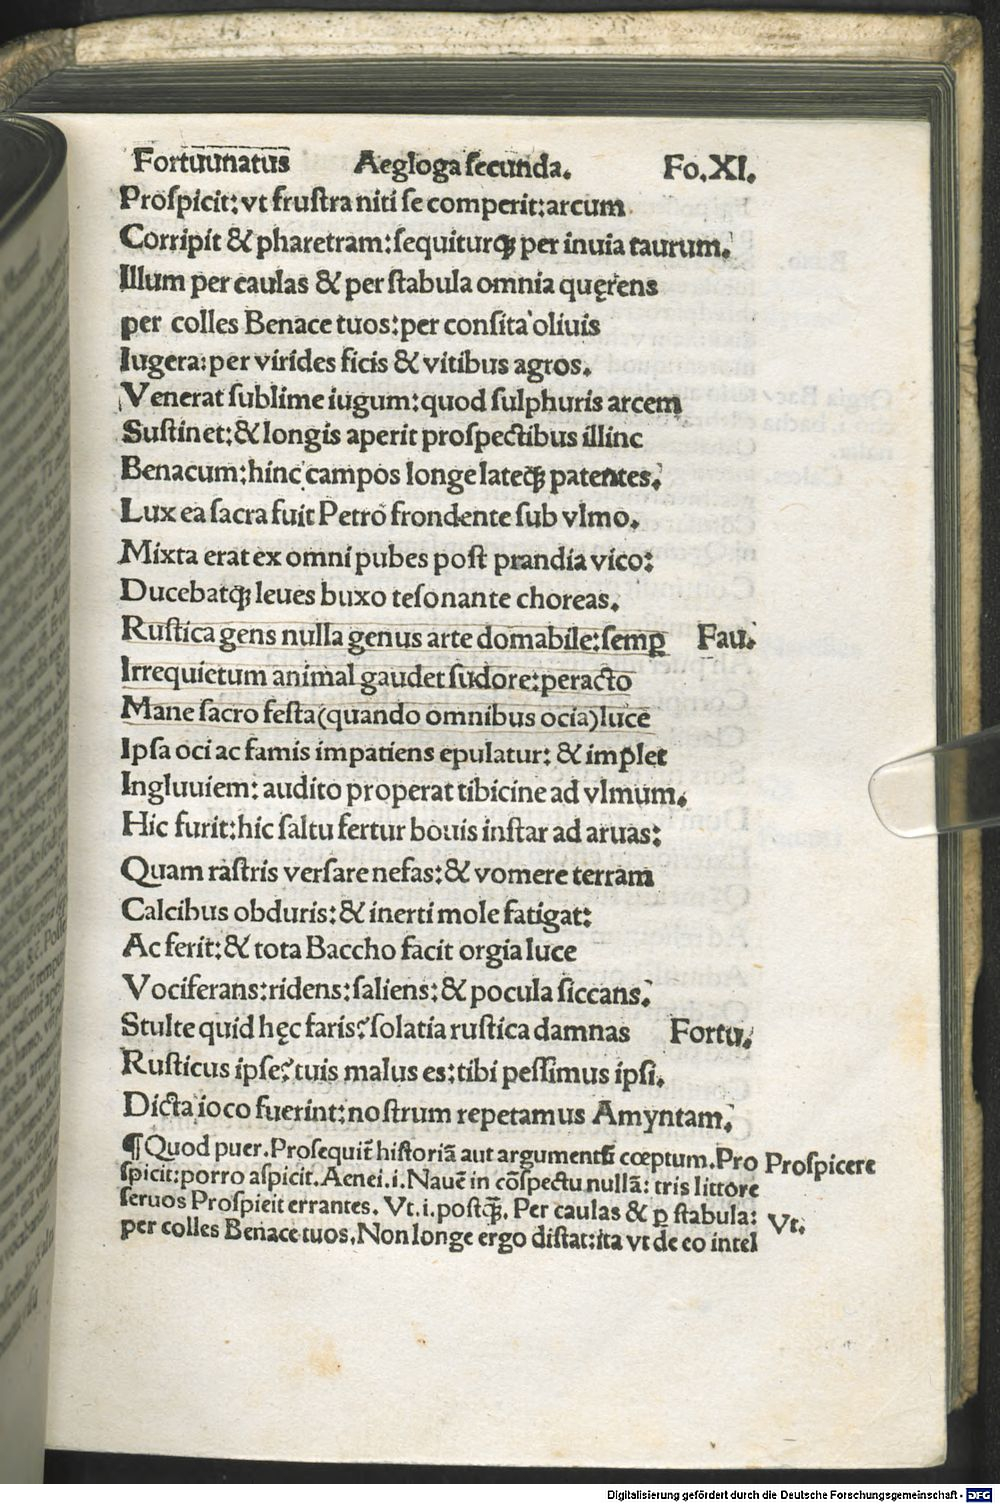 Fortuunatus Aegloga ſecunda. Fo.XI.
Proſpicit: vt fruſtra niti ſe comperit: arcum
Corripit & pharetram: ſequiturqꝫ per inuia taurum.
Illum per caulas & per ſtabula omnia quęrens
per colles Benace tuos: per conſita oliuis
Iugera: per virides ficis & vitibus agros.
Venerat ſublime iugum: quod ſulphuris arcem
Suſtinet: & longis aperit proſpectibus illinc
Benacum: hinc campos longe lateqꝫ patentes.
Lux ea ſacra fuit Petro frondente ſub vlmo.
Mixta erat ex omni pubes poſt prandia vico:
Ducebatqꝫ leues buxo teſonante choreas.
Ruſtica gens nulla genus arte domabile: ſemꝑ Fau.
Irrequietum animal gaudet ſudore: peracto
Mane ſacro feſta (quando omnibus ocia) luce
Ipſa oci ac famis impatiens epulatur: & implet
Ingluuiem: audito properat tibicine ad vlmum.
Hic furit: hic ſaltu fertur bouis inſtar ad aruas:
Quam raſtris verſare nefas: & vomere terram
Calcibus obduris: & inerti mole fatigat:
Ac ferit: & tota Baccho facit orgia luce
Vociferans: ridens: ſaliens: & pocula ſiccans.
Stulte quid hęc faris? ſolatia ruſtica damnas Fortu.
Ruſticus ipſe? tuis malus es: tibi peſſimus ipſi.
Dicta ioco fuerint: noſtrum repetamus Amyntam.
¶ Quod puer. Proſequit̃ hiſtoriã aut argumentũ cœptum. Pro Proſpicere
ſpicit: porro aſpicit. Aenei.i. Nauẽ in cõſpectu nullã: tris littore
ſeruos Proſpicit errantes. Vt.i. poſtqꝫ. Per caulas & ꝑ ſtabula: Vt.
per colles Benace tuos. Non longe ergo diſtat: ita vt de eo intel
Digitalisierung gefördert durch die Deutsche Forschungsgemeinschaft - DFG